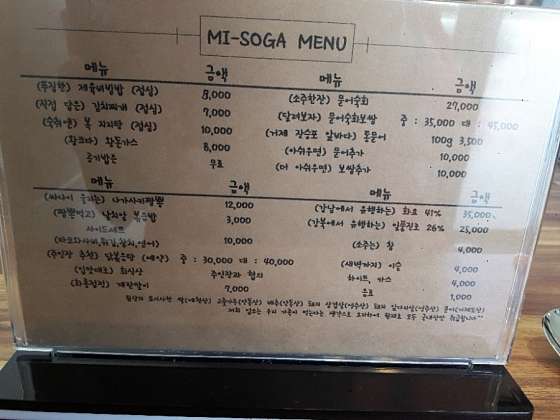 MI-SOGA MENU
메뉴 금액
(푸짐한) 제육비빔밥 (점심) 8,000
(직접 담은) 김치찌개 (점심) 7,000
(숙취엔) 복 지리탕 (점심) 10,000
(황크다) 황돈가스 8,000
공기밥은 무료
메뉴 금액
(소주한잔) 문어숙회 27,000
(달려보자) 문어숙회보쌈 중 : 35,000 대 : 45,000
(거제 장승포 앞바다) 통문어 100g 3,500
(아쉬우면) 문어추가 10,000
(더 아쉬우면) 보쌈추가 10,000
메뉴 금액
(싸사이 숨자는) 나가사끼짬뽕 12,000
(짬뽕먹고) 날치알 볶음밥 3,000
사이드세트
(타코와사비,튀김,참치,연어) 10,000
(주인장 추천) 닭볶음탕 (예약) 중 : 30,000 대 : 40,000
(입맛대로) 회식상 주인장과 협의
(화룡점정) 계란말이 7,000
메뉴 금액
(강남에서 유행하는) 화요 41% 35,000
(강북에서 유행하는) 일품진로 26% 25,000
(소주는) 참 4,000
(새벽까지) 이슬 4,000
하이트, 카스 4,000
음료 1,000